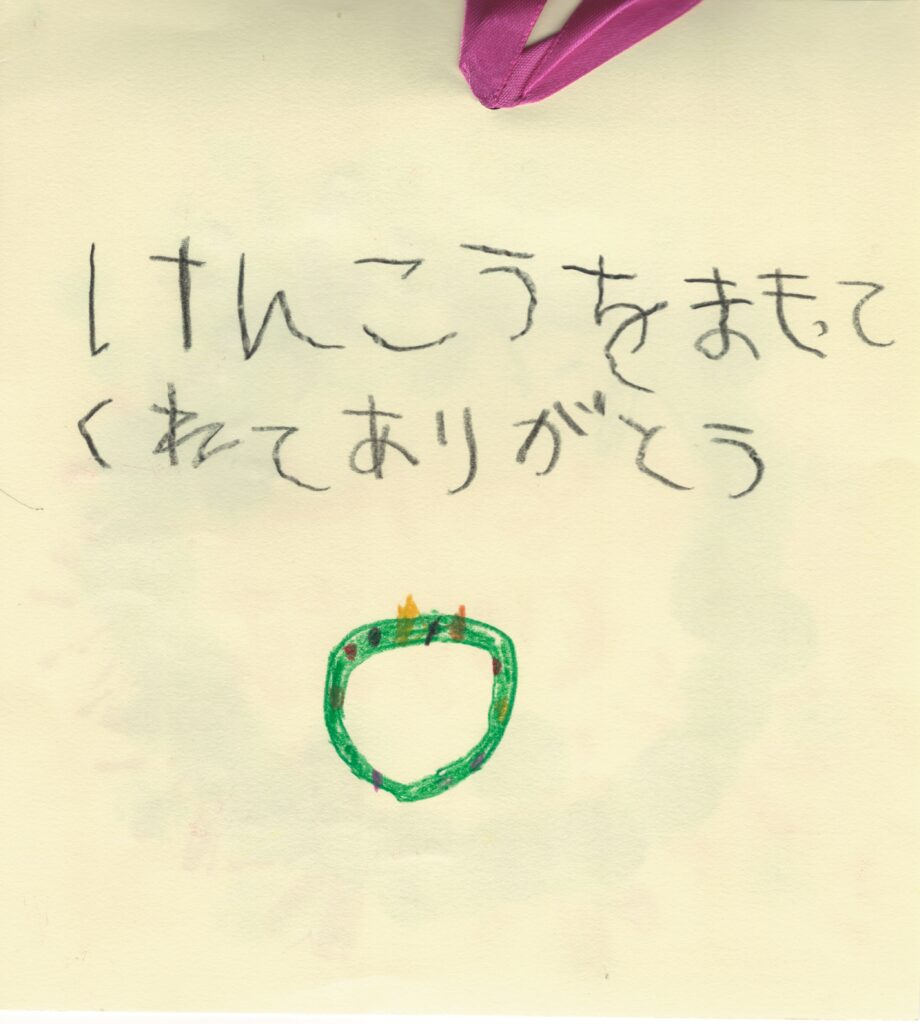 けんこうをまもって
くれてありがとう